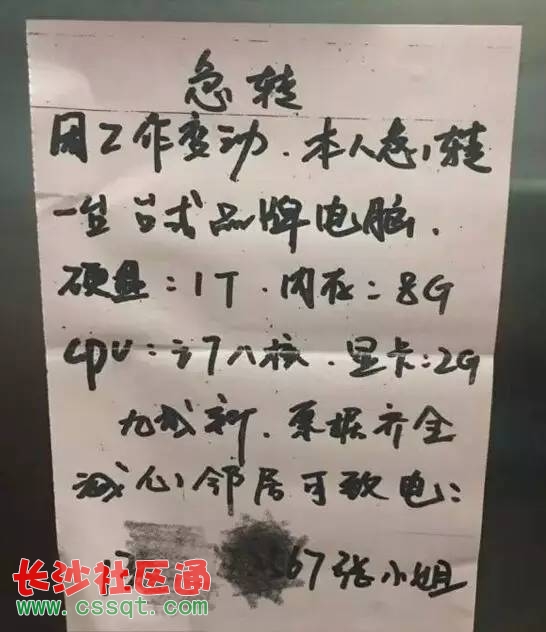 急转
因工作变动.本人急转
一台台式品牌电脑.
硬盘:1T.内存:8G
CPU:i7八核.显卡:2G
九成新.票据齐全
诚心邻居可致电:
13 67张小姐
长沙社区通
www.cssqt.com